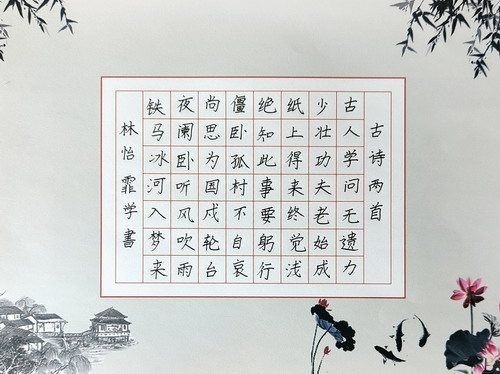 古诗两首
古人学问无遗力
少壮功夫老始成
纸上得来终觉浅
绝知此事要躬行
僵卧孤村不自哀
尚思为国戍轮台
夜阑卧听风吹雨
铁马冰河入梦来
林怡霏学書